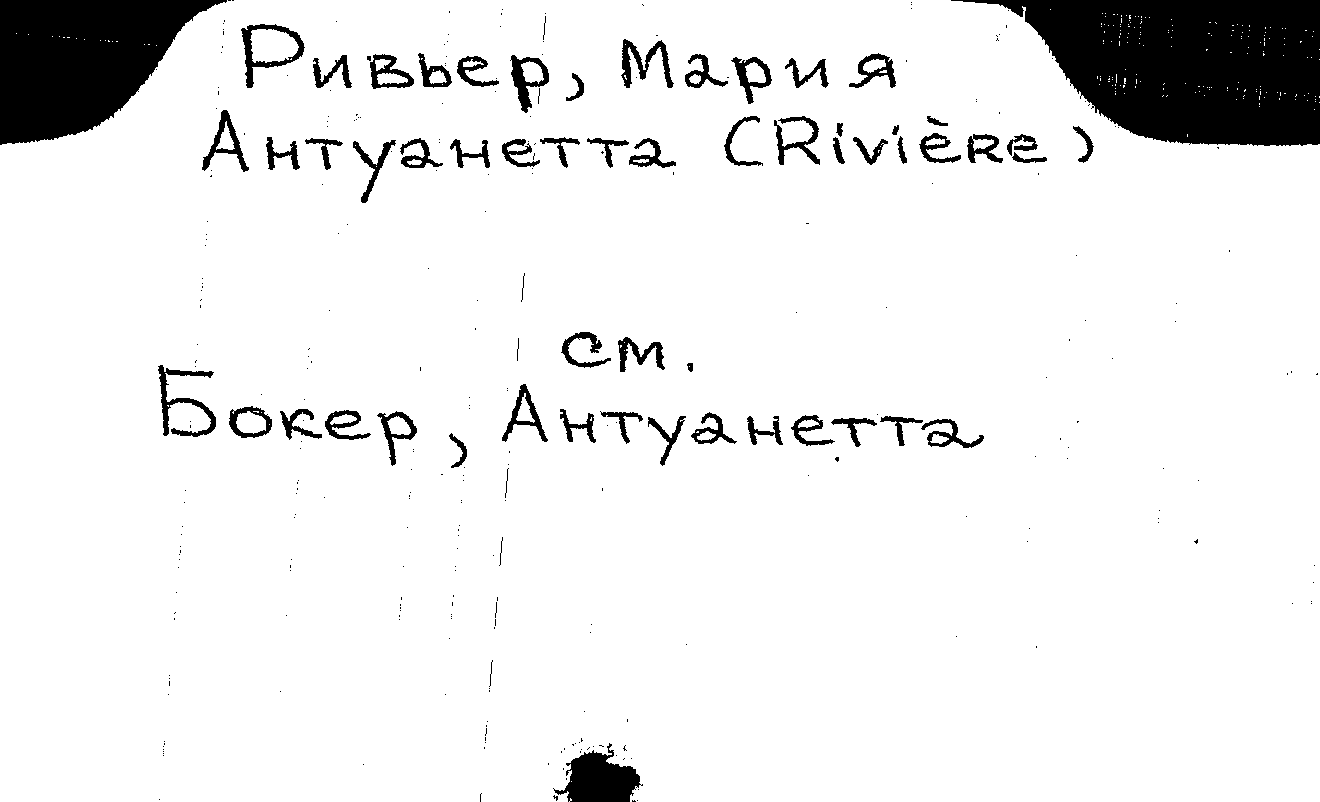 Ривьер, Мария
Антуанетта (Rivière)
см.
Бокер, Антуанетта